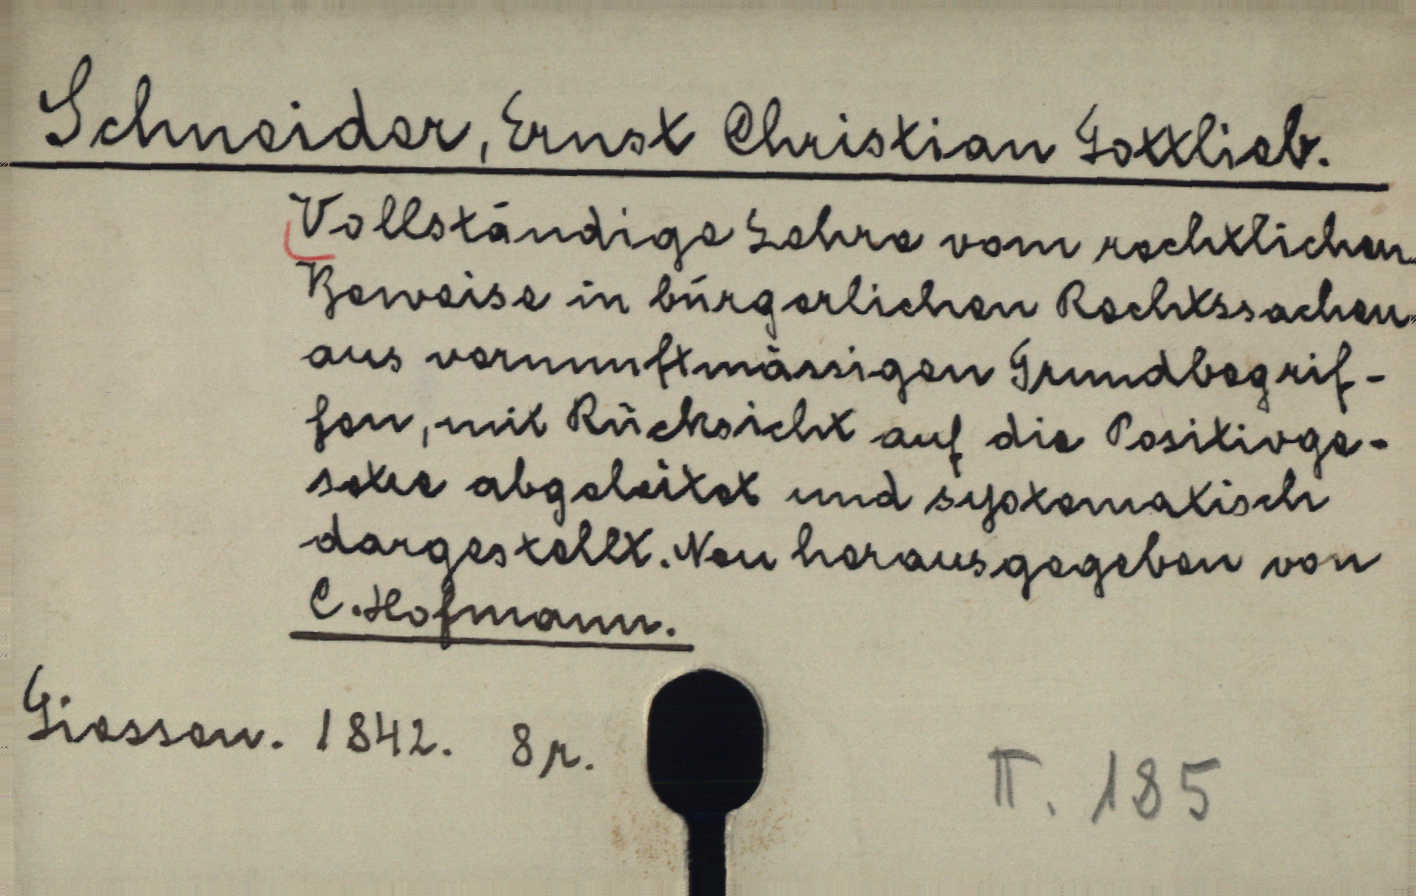 Schneider, Ernst Christian Gottlieb.
Vollständige Lehre vom rechtlichen
Beweise in bürgerlichen Rechtssachen
aus vernunftmässigen Grundbegrif-
fen, mit Rücksicht auf die Positivge-
setze abgeleitet und systematisch
dargestellt. Neu herausgegeben von
C. Hofmann.
Giessen. 1842. 8r.
π. 185